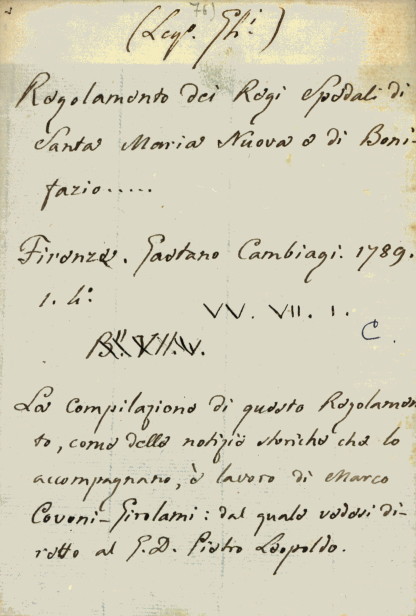 76)
(Leg. Ghi.)
Regolamento dei Regi Spedali di
Santa Maria Nuova e di Boni-
fazio.....
Firenze. Gaetano Cambiagi. 1789.
1. h:
VV. VII. 1.
C.
La compilazione di questo Regolamen
to, come delle notizie storiche che lo
accompagnano, è lavoro di Marco
Covoni-Girolami: dal quale vedesi di-
retto al G.D. Pietro Leopoldo.